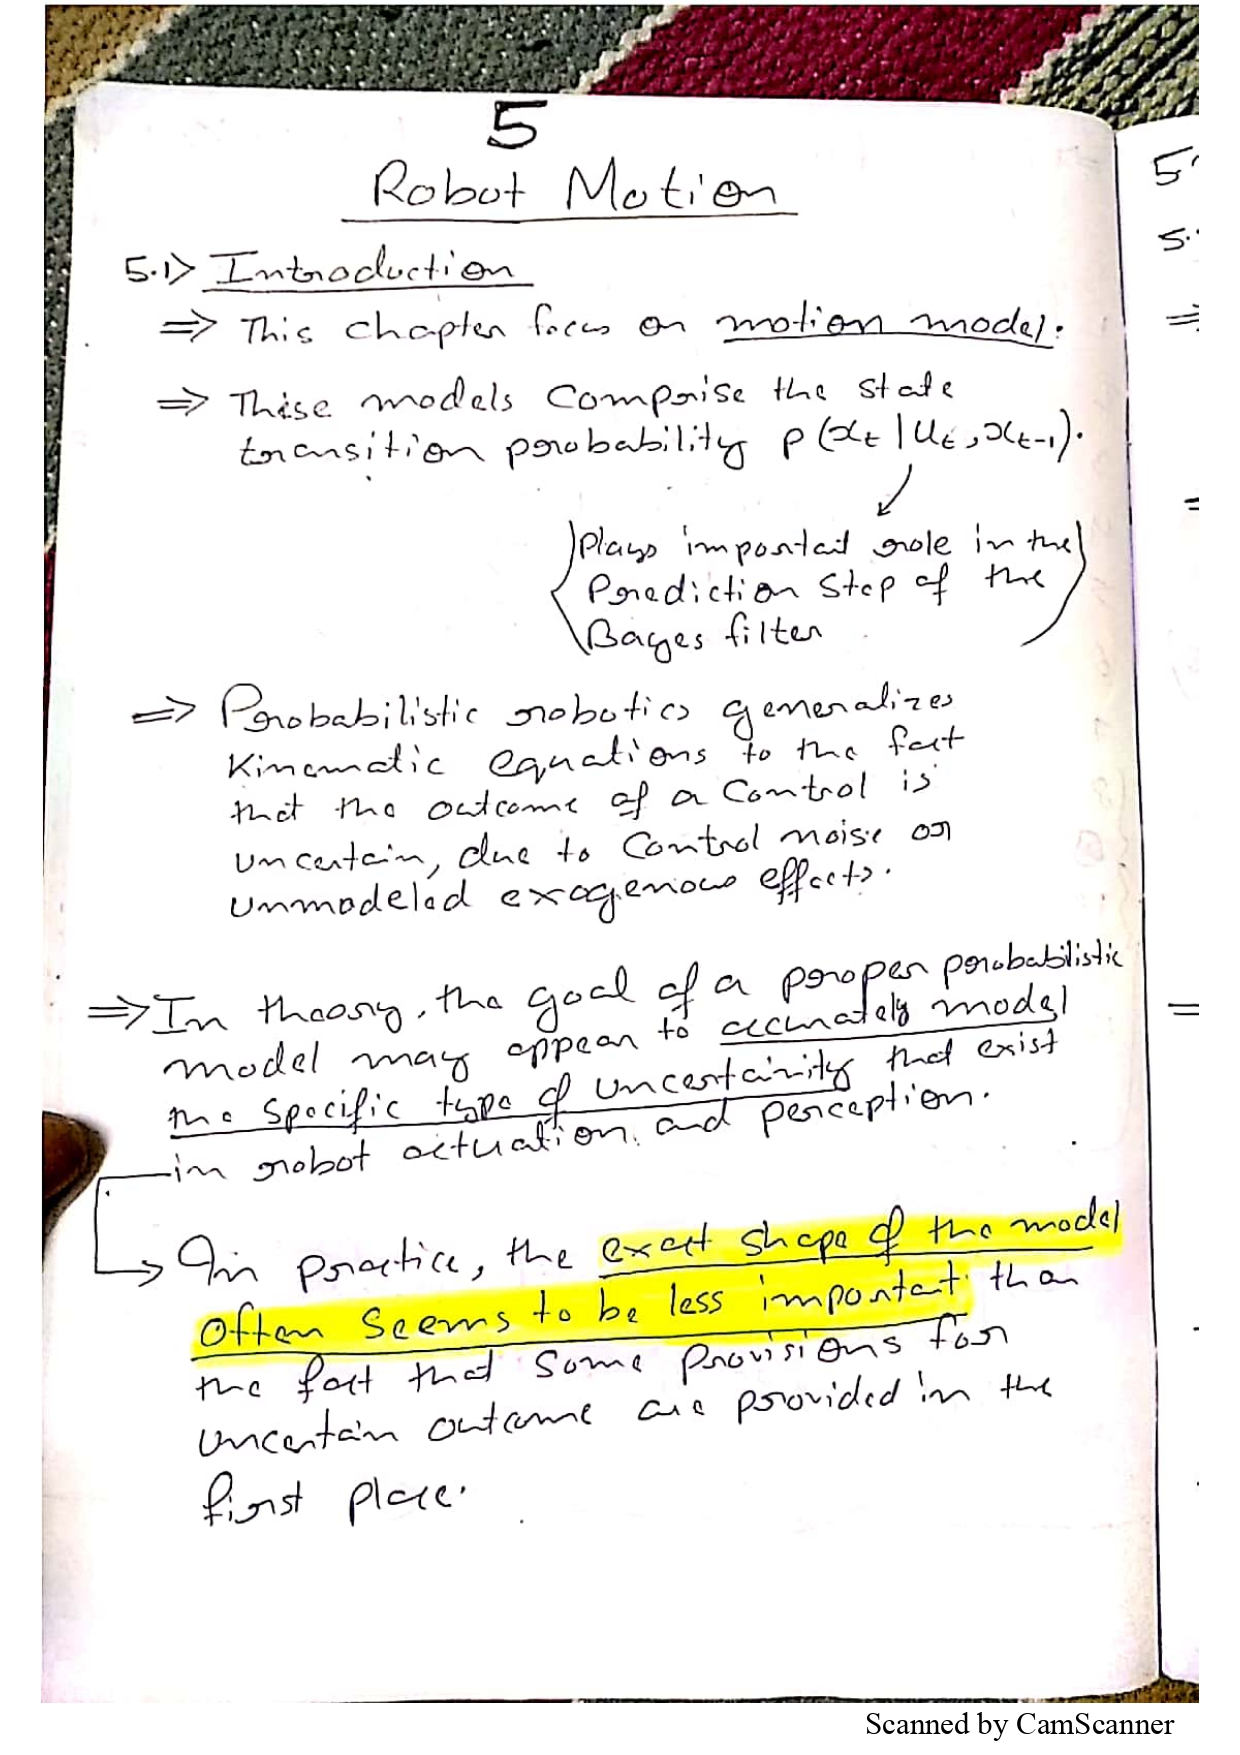 5
Robot Motion
5.1> Introduction
⇒ This chapter focus on motion model.
⇒ These models comprise the state
transition probability p(xₜ | uₜ, xₜ₋₁).
Plays important role in the
Prediction Step of the
Bayes filter
⇒ Probabilistic robotics generalizes
Kinematic equations to the fact
that the outcome of a Control is
uncertain, due to Control noise or
unmodeled exogenous effects.
⇒ In theory, the goal of a proper probabilistic
model may appear to accurately model
the specific type of uncertainity that exist
in robot actuation and perception.
→ In practice, the exact shape of the model
often seems to be less important than
the fact that some provisions for
uncertain outcome are provided in the
first place.
5
5.
⇒
Scanned by CamScanner